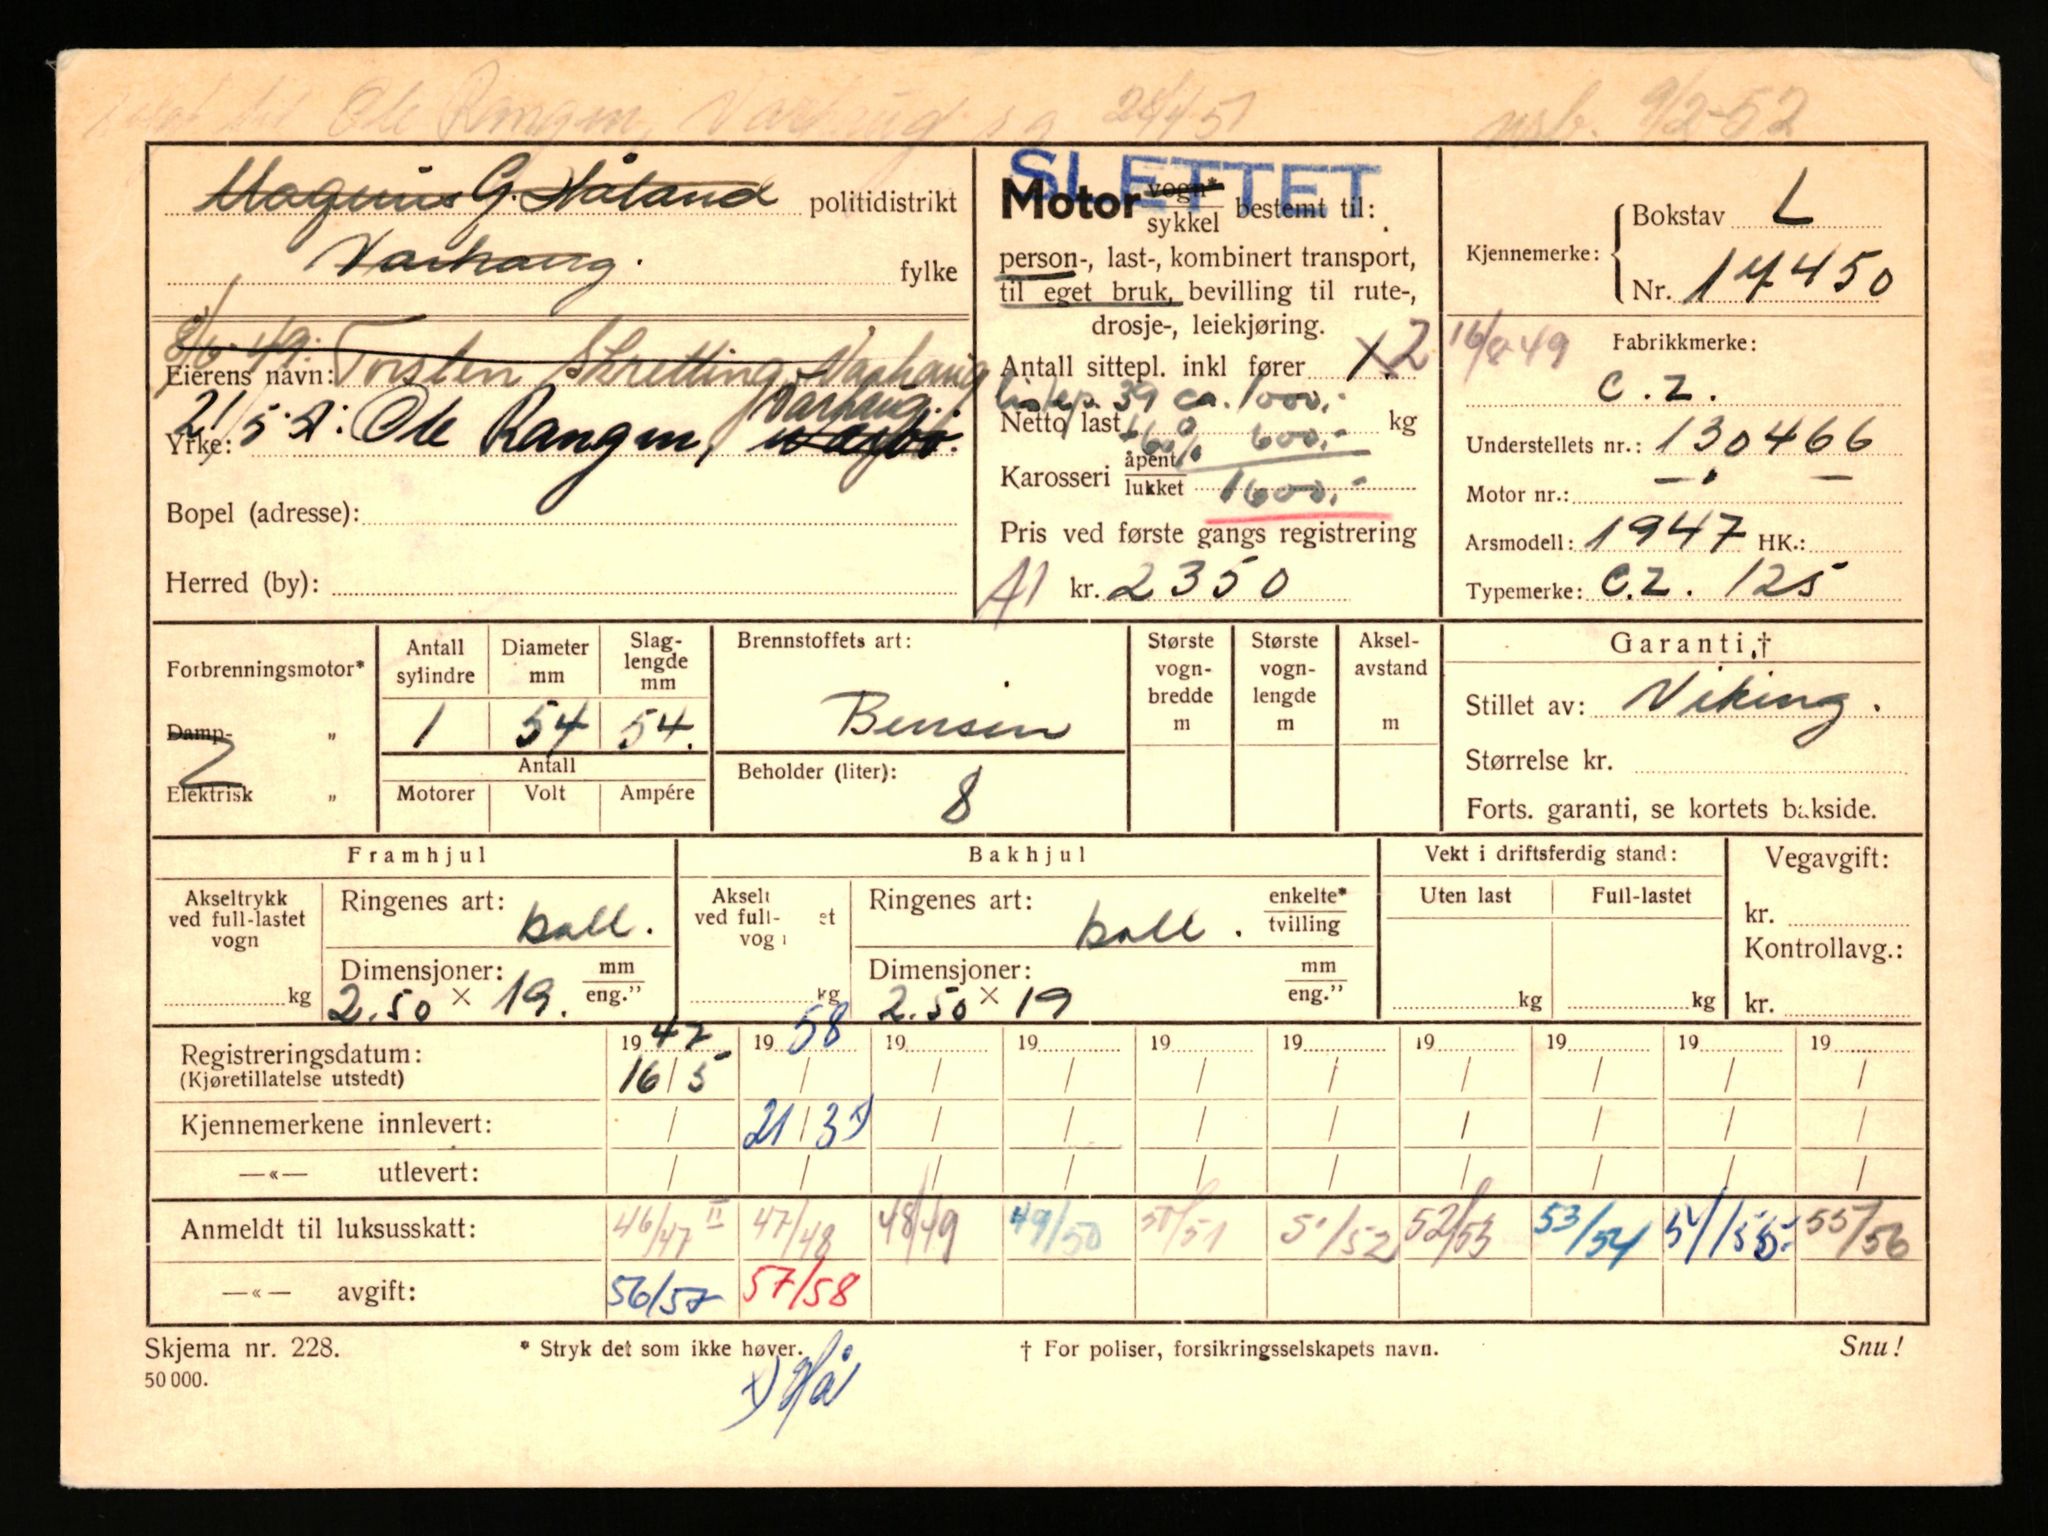 til Ole Rangen, Varhaug 28/4 51
9/2-52
Magnus G. Håland politidistrikt
Varhaug. fylke
8/6-49: Torsten Skretting, Varhaug
Eierens navn:
Varhaug.
21/5-51: Ole Rangen,
Yrke:
Bopel (adresse):
Herred (by):
SLETTET
Motor vogn*
sykkel bestemt til:
person-, last-, kombinert transport,
til eget bruk, bevilling til rute-,
drosje-, leiekjøring.
Antall sittepl. inkl fører 1. 2
listep. 39 ca. 1000,-
Netto last kg
+ 60% 600,-
Karosseri åpent
lukket 1600,-
Pris ved første gangs registrering
A1 kr. 2350
Kjennemerke: Bokstav L
Nr. 14450
16/8-49 Fabrikkmerke:
C.Z.
Understellets nr.: 130466
Motor nr.: — " —
Arsmodell: 1947 HK.:
Typemerke: C.Z. 125
Forbrenningsmotor*
Damp- „
Elektrisk „
Antall sylindre
Diameter mm
Slaglengde mm
1 54 54.
Antall
Motorer Volt Ampére
Brennstoffets art:
Bensin
Beholder (liter):
8
Største vognbredde m
Største vognlengde m
Akselavstand m
Garanti,†
Stillet av: Viking.
Størrelse kr.
Forts. garanti, se kortets bakside.
Framhjul
Akseltrykk
ved full-lastet
vogn
kg
Ringenes art:
ball.
Dimensjoner: mm
2.50 × 19. eng.”
Bakhjul
Akselt
ved full- et
vog
kg
Ringenes art: enkelte*
ball. tvilling
Dimensjoner: mm
2.50 × 19 eng.”
Vekt i driftsferdig stand:
Uten last Full-lastet
kg kg
Vegavgift:
kr.
Kontrollavg.:
kr.
Registreringsdatum: 1947 1958 19 19 19 19 19 19 19 19
(Kjøretillatelse utstedt) 16/5 / / / / / / / / /
Kjennemerkene innlevert: / 21/3 x) / / / / / / / /
—«— utlevert: / / / / / / / / / /
Anmeldt til luksusskatt: 46/47 II 47/48 48/49 49/50 50/51 51/52 52/53 53/54 54/55 55/56
—«— avgift: 56/57 57/58
Skjema nr. 228. * Stryk det som ikke høver. † For poliser, forsikringsselskapets navn. Snu!
50 000.
x) H/å